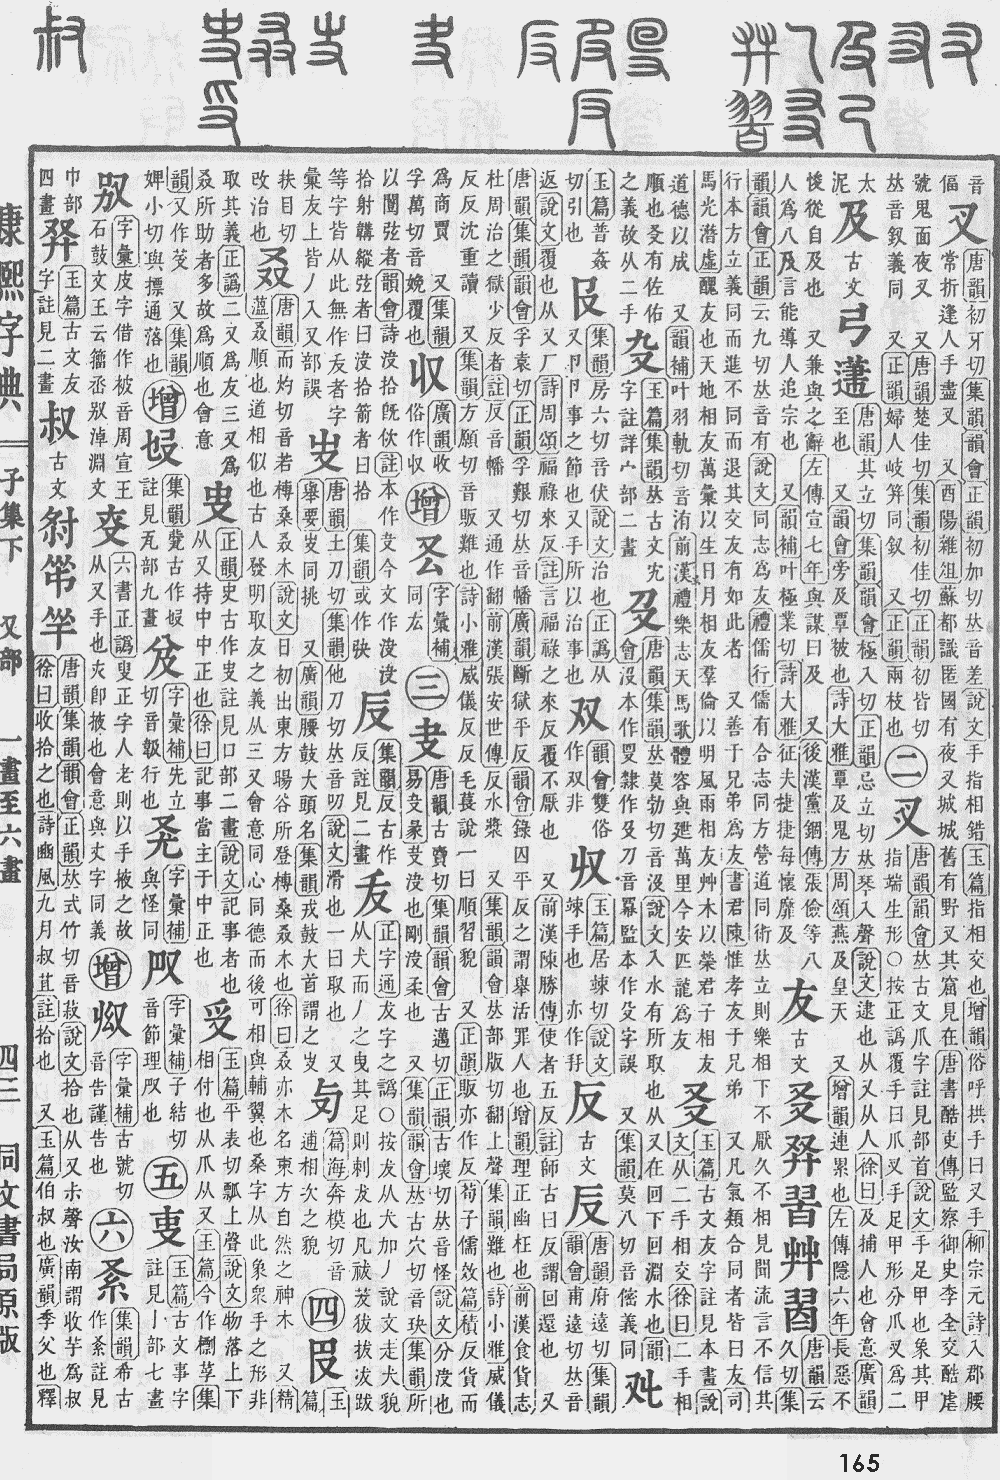 叉 唐韻初牙切集韻韻會正韻初加切𠀤音差說文手指相錯玉篇指相交也增韻俗呼拱手曰叉手柳宗元詩入郡腰
常折逢人手盡叉 又酉陽雜俎蘇都識匿國有夜叉城城舊有野叉其窟見在唐書酷吏傳監察御史李全交酷虐
號鬼面夜叉 又唐韻楚佳切集韻初佳切正韻初皆切
𠀤音釵義同 又正韻婦人岐筓同釵 又正韻兩枝也
二 㕚 唐韻韻會𠀤古文爪字註見部首說文手足甲也象其甲
指端生形○按正譌覆手曰爪叉手足甲形分爪叉爲二
及 古文 弓 唐韻其立切集韻韻會極入切正韻忌立切𠀤琴入聲說文逮也从又从人徐曰及前人也會意廣韻
至也 又韻會旁及覃被也詩大雅覃及鬼方周頌燕及皇天 又增韻連累也左傳隱六年長惡不
悛從自及也 又兼與之辭左傳宣七年與謀曰及 又後漢黨錮傳張儉等八
人爲八及言能導人追宗也 又韻補叶極業切詩大雅征夫捷捷每懷靡及
友 古文 唐韻云久切集
韻韻會正韻云九切𠀤音有說文同志爲友禮儒行儒有合志同方營道同術𠀤立則樂相下不厭久不相見聞流言不信其
行本方立義同而進不同而退其交友有如此者 又善于兄弟爲友書君陳惟孝友于兄弟 又凡氣類合同者皆曰友司
馬光潛虛醒友也天地相友萬彙以生日月相友羣倫以明風雨相友艸木以榮君子相友
道德以成 又韻補叶羽軌切音洧前漢禮樂志天馬歌體容與迣萬里今安匹龍爲友
㕛 玉篇古文友字註見本畫說
文从二手相交徐曰二手相
順也㕛有佐佑
之義故从二手
玉篇集韻𠀤古文
字註詳宀部二畫
唐韻集韻𠀤莫勃切音沒說文入水有所取也从又在回下回淵水也韻
會沒本作𠬛隸作殳刀音羃監本作殳字誤 又集韻莫八切音傛義同
玉篇普姦
切引也
𠬝 集韻房六切音伏說文治也正譌从
又卪卪事之節也又手所以治事也
双 韻會雙俗
作双非
収 玉篇居竦切說文
竦手也 亦作廾
反 古文 唐韻府遠切集韻
韻會甫遠切𠀤音
返說文覆也从又厂詩周頌福祿來反註言福祿之來反覆不厭也 又前漢陳勝傳使者五反註師古曰反謂回還也 又
唐韻集韻韻會孚袁切正韻孚艱切𠀤音幡廣韻斷獄平反韻會錄囚平反之謂舉活罪人也增韻理正幽枉也前漢食貨志
杜周治之獄少反者註反音幡 又通作翻前漢張安世傳反水漿 又集韻韻會𠀤部版切翻上聲集韻難也詩小雅威儀
反反沈重讀 又集韻方願切音販難也詩小雅威儀反反毛萇說一曰順習貌 又正韻販亦作反荀子儒效篇積反貨而
爲商賈 又集韻
孚萬切音娩覆也
収 廣韻收
俗作収
增 厷 字彙補
同厷
三 叏 唐韻古賣切集韻韻會古邁切正韻古壞切𠀤音怪說文分決也
易夬彖夬決也剛決柔也 又集韻韻會𠀤古穴切音玦集韻所
以闓弦者韻會詩決拾旣佽註本作夬今文作決決
拾射韝縱弦者曰決拾箭者曰拾 集韻或作觖
𠬡 集韻反古作
反註見二畫
犮 正字通友字之譌○按犮从犬加丿說文走犬貌
从犬而丿之曳其足則剌犮也凡祓茇拔拔皆
等字皆从此無作友者字
彙友上皆丿入又部誤
𠬢 唐韻土刀切集韻他刀切𠀤音叨說文滑也一曰取也 又
舉要𠬢同挑 又廣韻腰鼓大頭名集韻戎鼓大首謂之𠬢
篇海奔模切音
逋相次之貌
四 玉篇
扶目切
改治也
叒 唐韻而灼切音若榑桑叒木說文日初出東方暘谷所登榑桑叒木也徐曰叒亦木名東方自然之神木 又精
薀叒順也道相似也古人發明取友之義从三又會意同心同德而後可相與輔翼也桑字从此象眾手之形非
取其義正譌二又爲友三又爲
叒所助者多故爲順也會意
叓 正韻史古作叓註見口部二畫說文記事者也
从又持中中正也徐曰記事當主于中中正也
𠬪 玉篇平表切瓢上聲說文物落上下
相付也从爪从又玉篇今作摽莩集
韻又作芆 又集韻
婢小切與摽通落也
增 集韻甓古作
註見瓦部九畫
字彙補先立
切音馺行也
字彙補
與怪同
字彙補子結切
音節理也
五 玉篇古文事字
註見亅部七畫
字彙皮字借作被音周宣王
石鼓文王云籀丞㕟淖淵文
六書正譌叟正字人老則以手掖之故
从又手也㚒卽掖也會意與丈字同義
增 字彙補古號切
音告謹告也
六 集韻希古
作註見
巾部
四畫
玉篇古文友
字註見二畫
叔 古文 唐韻集韻韻會正韻𠀤式竹切音菽說文拾也从又尗聲汝南謂收芋爲叔
徐曰收拾之也詩豳風九月叔苴註拾也 又玉篇伯叔也廣韻季父也釋
康熙字典 子集下 又部 一畫至六畫 四三 同文書局原版
165